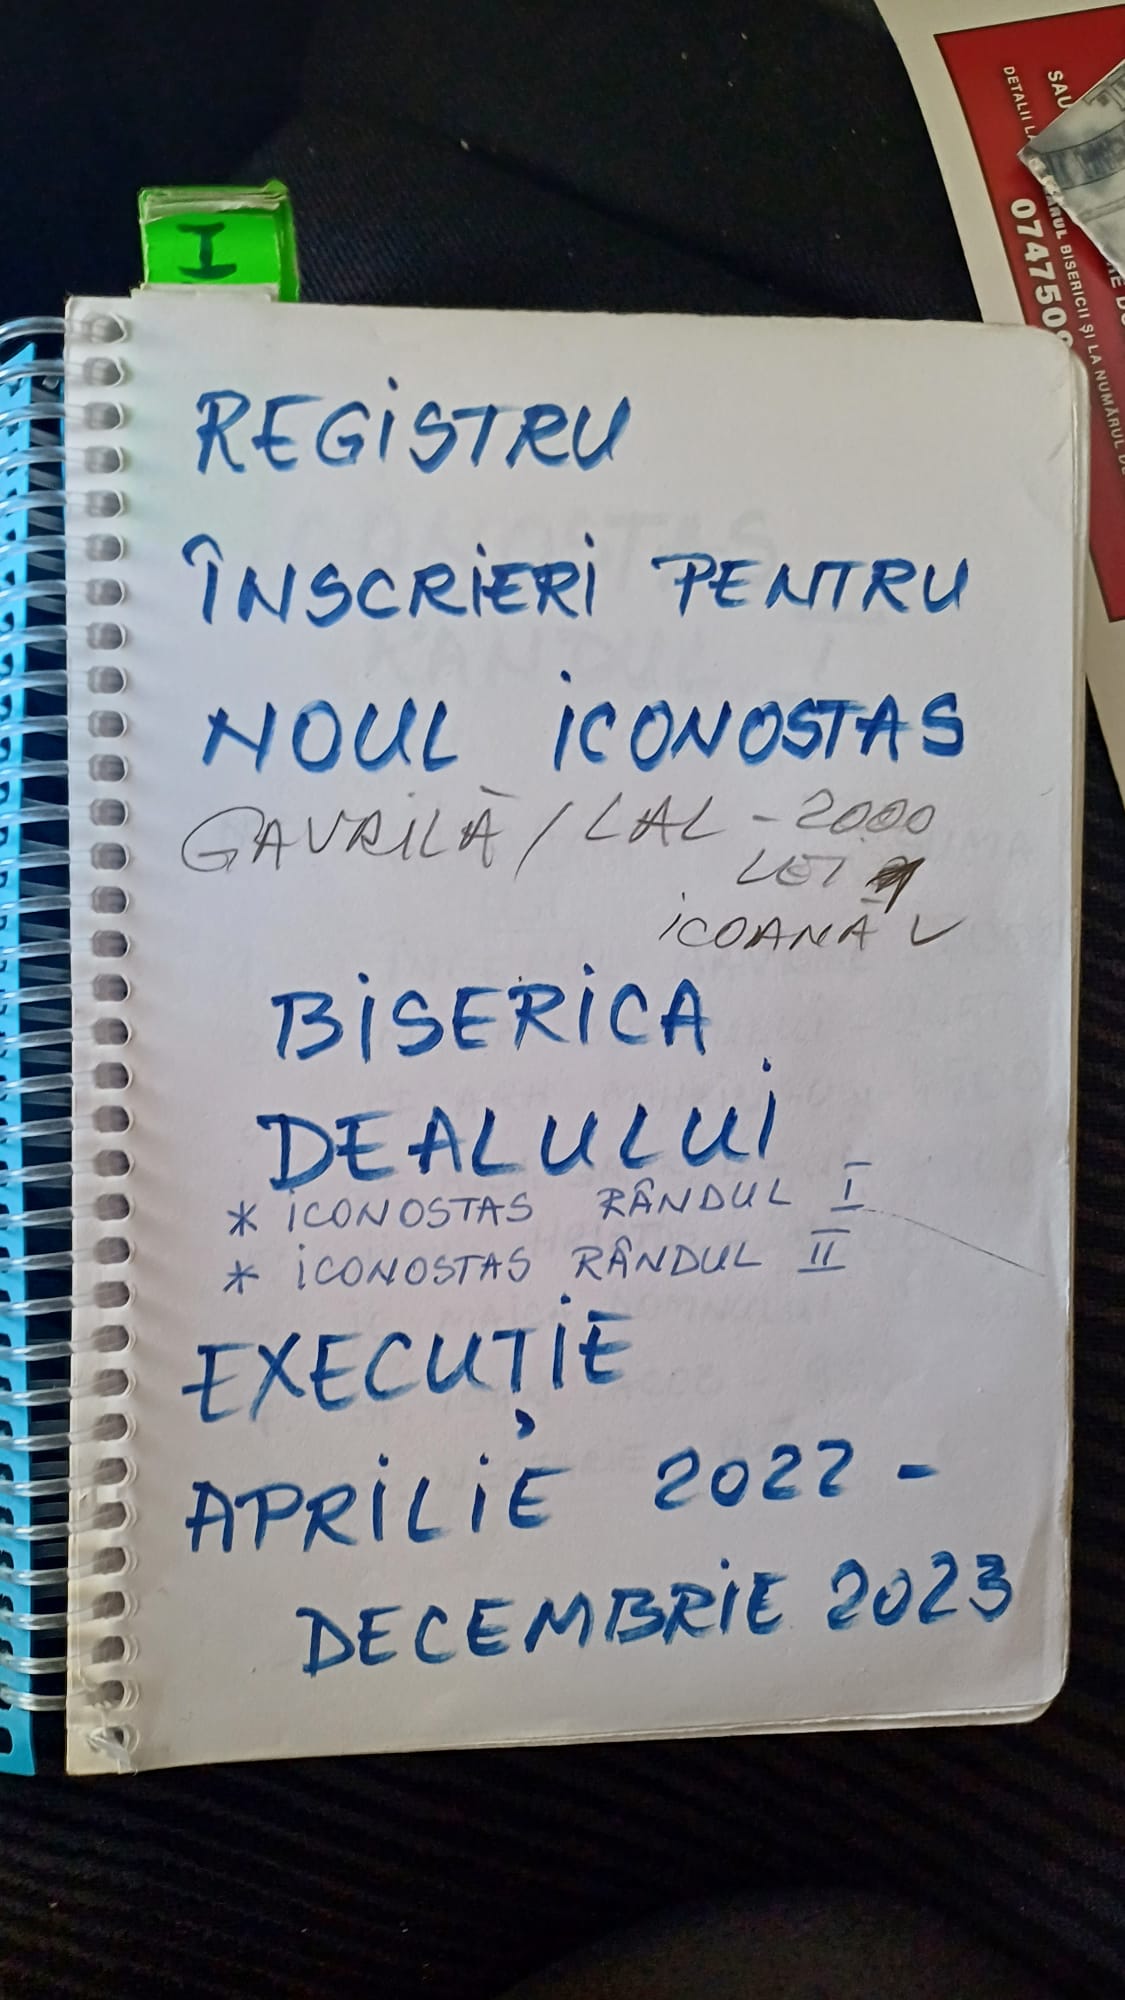 I
REGISTRU
ÎNSCRIERI PENTRU
NOUL ICONOSTAS
GAVRILĂ / LAL - 2000
LEI
ICOANĂ
BISERICA
DEALULUI
* ICONOSTAS RÂNDUL I
* ICONOSTAS RÂNDUL II
EXECUȚIE
APRILIE 2022 -
DECEMBRIE 2023
SAU
DETALII
BISERICII ȘI LA NUMĂRUL
074750